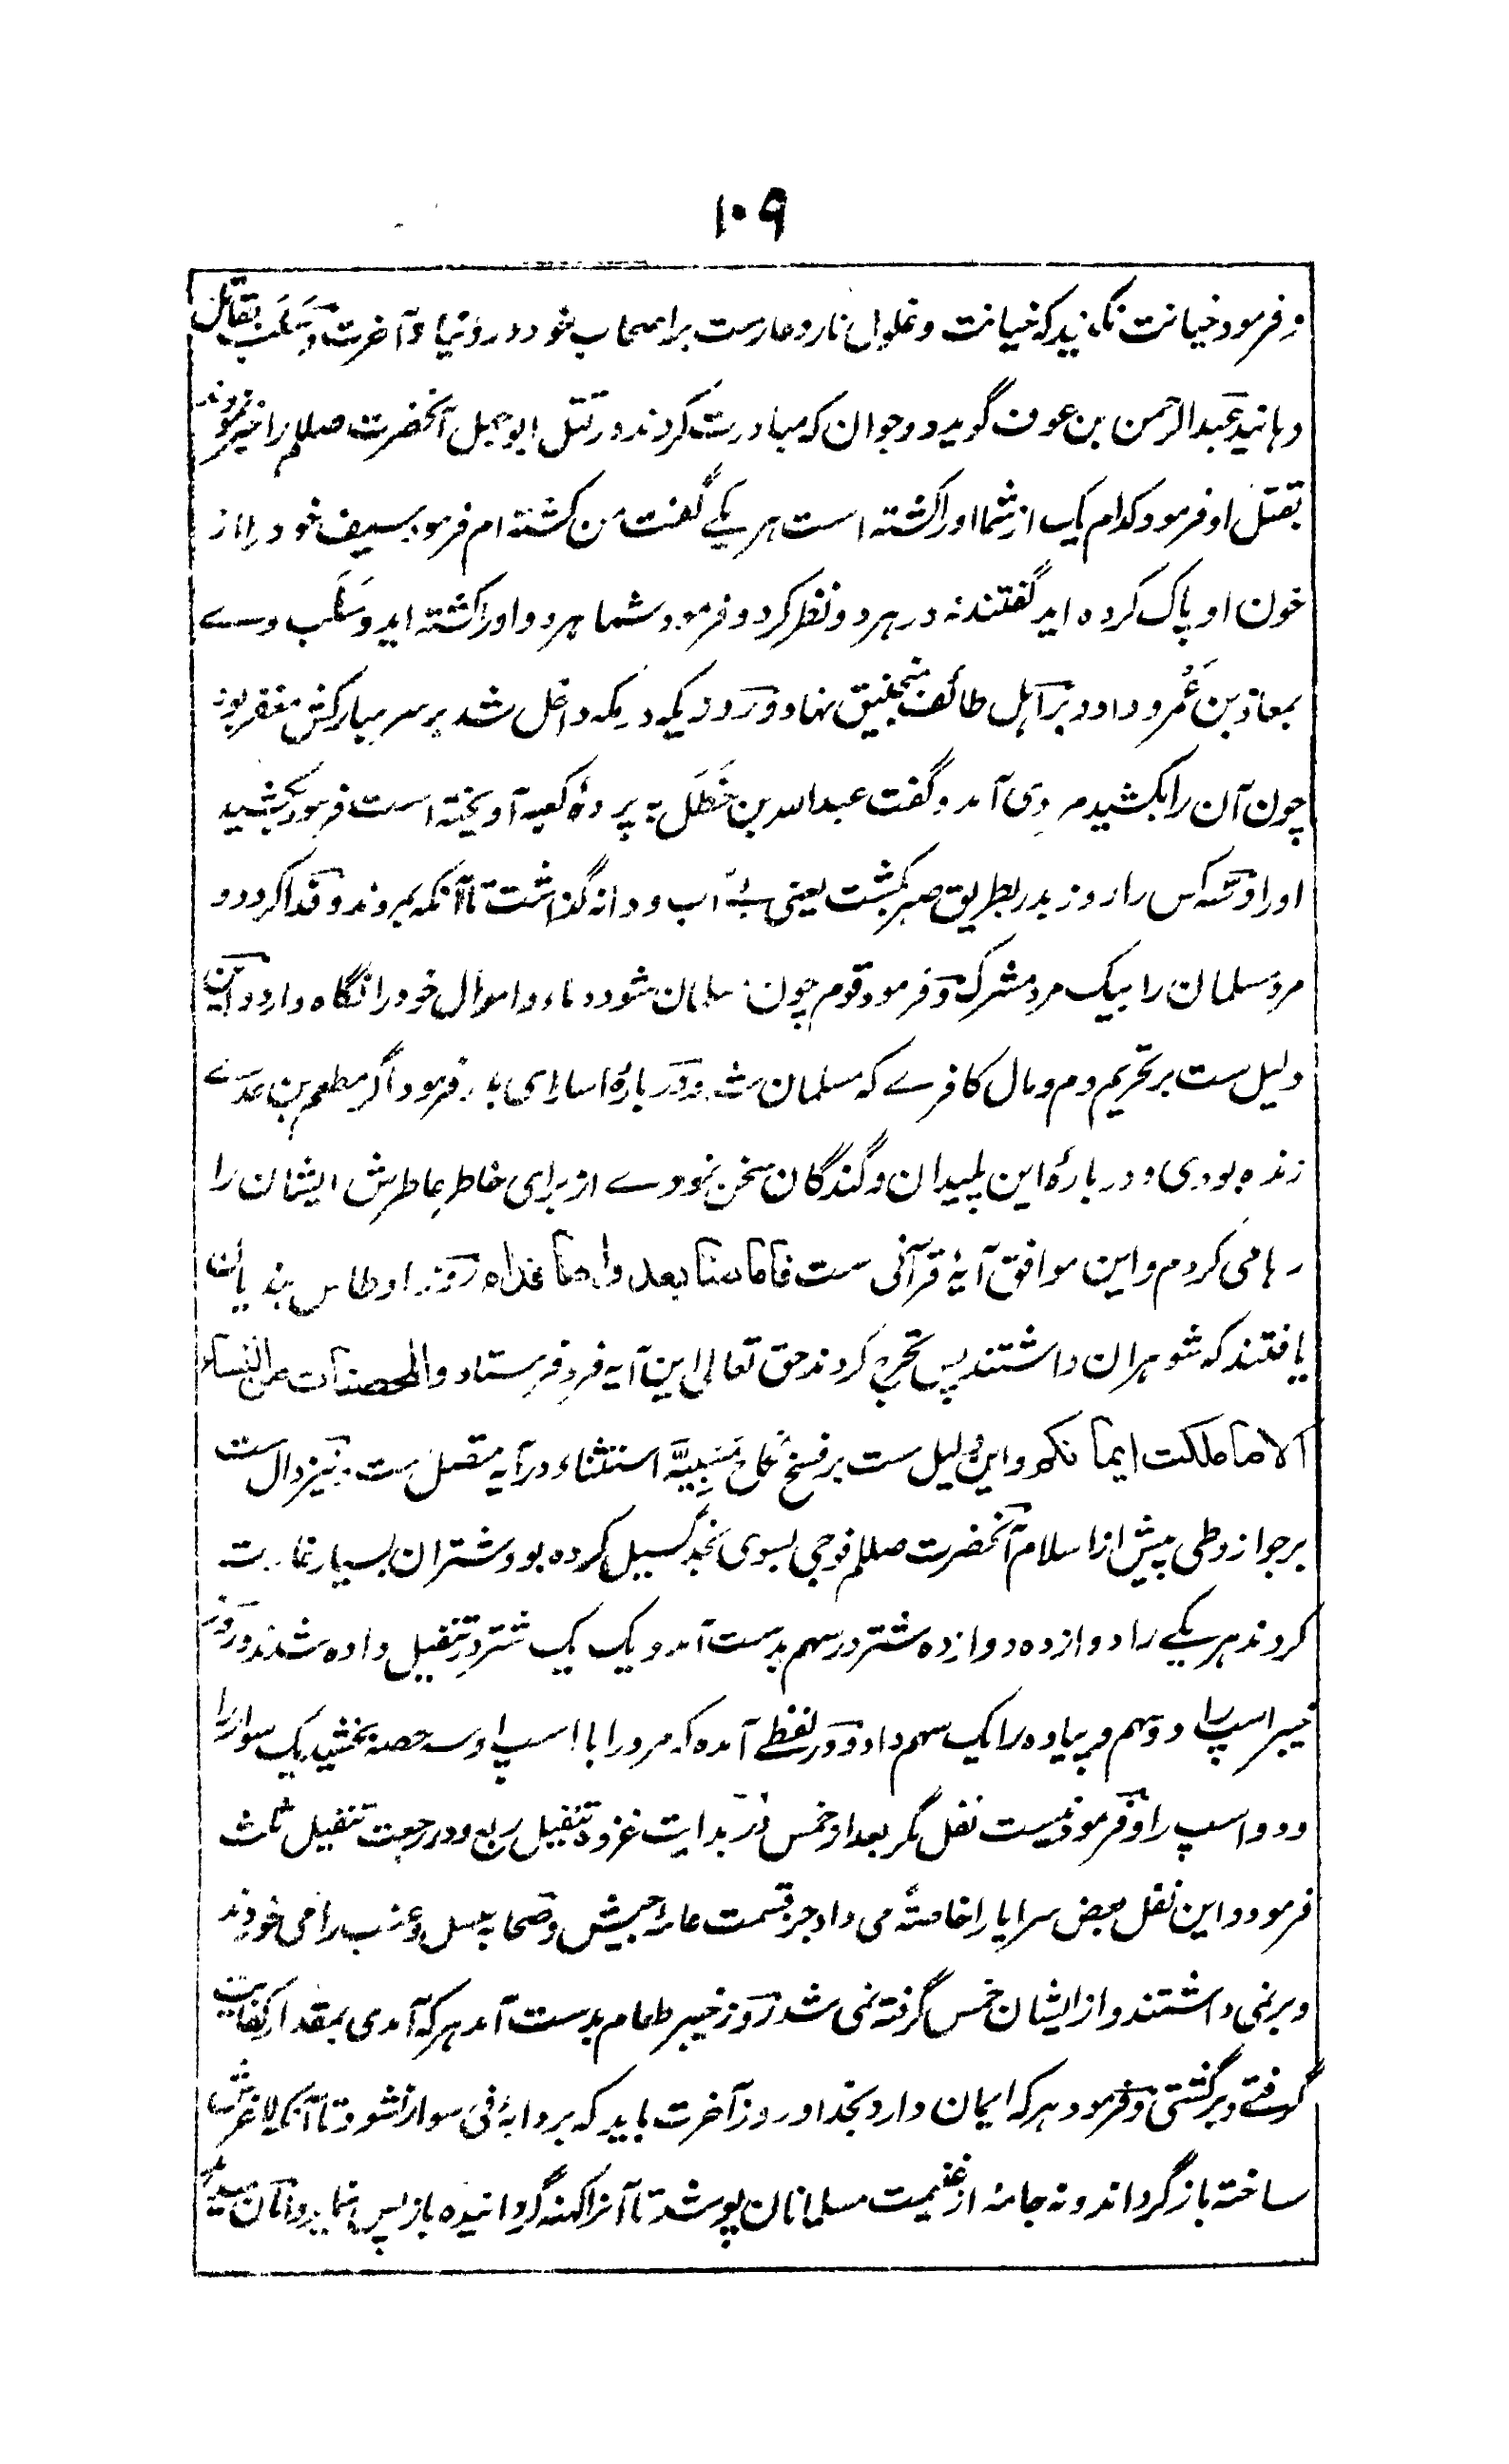 ۱۰۹
و فرمود خیانت نکنید که خیانت و غلول نار و عارست بر اصحاب خود در دنیا و آخرت و سَلَب بقاتل
دہانید عبدالرحمن بن عوف گوید دو جوان که مبادرت کردند در قتل ابوجہل آنحضرت صللم را خبر نمودند
بقتل او فرمود کدام یک از شما او را کشته است ہر یکے گفت من کشته ام فرمود سیف خود را از
خون او پاک کرده اید گفتند نه در ہر دو نظر کرد و فرمود شما ہر دو او را کشته اید و سَلَب وے
بمعاذ بن عَمرو داد و بر اہل طائف منجنیق نہاد و روزیکہ در مکہ داخل شد بر سر مبارکش مغفر بود
چون آن را بکشید مردی آمد و گفت عبداللہ بن خَطَل بہ پردۂ کعبہ آویختہ است فرمود بکشید
او را و سہ کس را روز بدر بطریق صبر بکشت یعنی بے آب و دانہ گذاشت تا آنکہ بمردند و فدا کرد دو
مرد مسلمان را بیک مرد مشرک و فرمود قوم چون مسلمان شود دماء و اموال خود را نگاہ دارد و این
دلیل ست بر تحریم دم و مال کافرے کہ مسلمان شد و در بارۂ اسارای بدر فرمود اگر مطعم بن عدے
زندہ بودی و در بارۂ این پلیدان و گندگان سخن نمودے از برای خاطر عاطرش ایشان را
رہا می کردم و این موافق آیۂ قرآنی ست فاما منا بعد واما فداء و روز اوطاس بندیان
یافتند کہ شوہران داشتند پس تحرج کردند حق تعالی این آیہ فرو فرستاد والمحصنات من النساء
الا ما ملکت ایمانکم و این دلیل ست بر فسخ نکاح مَسبِیَّہ استثناء در آیہ متصل ست و نیز دال ست
بر جواز وطی پیش از اسلام آنحضرت صللم فوجی بسوی نجد گسیل کرده بود شتران بسیار غارت
کردند ہر یکے را دوازده دوازده شتر در سہم بدست آمد و یک یک شتر در تنفیل داده شدند و روز
خیبر اسپ را دو سہم و پیادہ را یک سہم داد و در لفظے آمدہ کہ مرد را با اسپ او سہ حصہ بخشید یک سوار را
و دو اسپ را و فرمود نیست نفل مگر بعد از خمس و در بدایت غزوہ تنفیل ربع و در رجعت تنفیل ثلث
فرمود و این نفل بعض سرایا را خاصۃً می داد جز قسمت عامہ جیش و صحابہ عسل و عنب را می خوردند
و بر نمی داشتند و از ایشان خمس گرفته نمی شد و روز خیبر طعام بدست آمد ہر کہ آمدی بمقدار کفایت
گرفتے و برگشتی و فرمود ہر کہ ایمان دارد بخدا و روز آخرت باید کہ بر دابۂ فئ سوار نشود تا آنکہ لاغرش
ساختہ باز گرداند و نہ جامہ از غنیمت مسلمانان پوشد تا آنرا کہنہ گردانیدہ باز پس نماید و امان